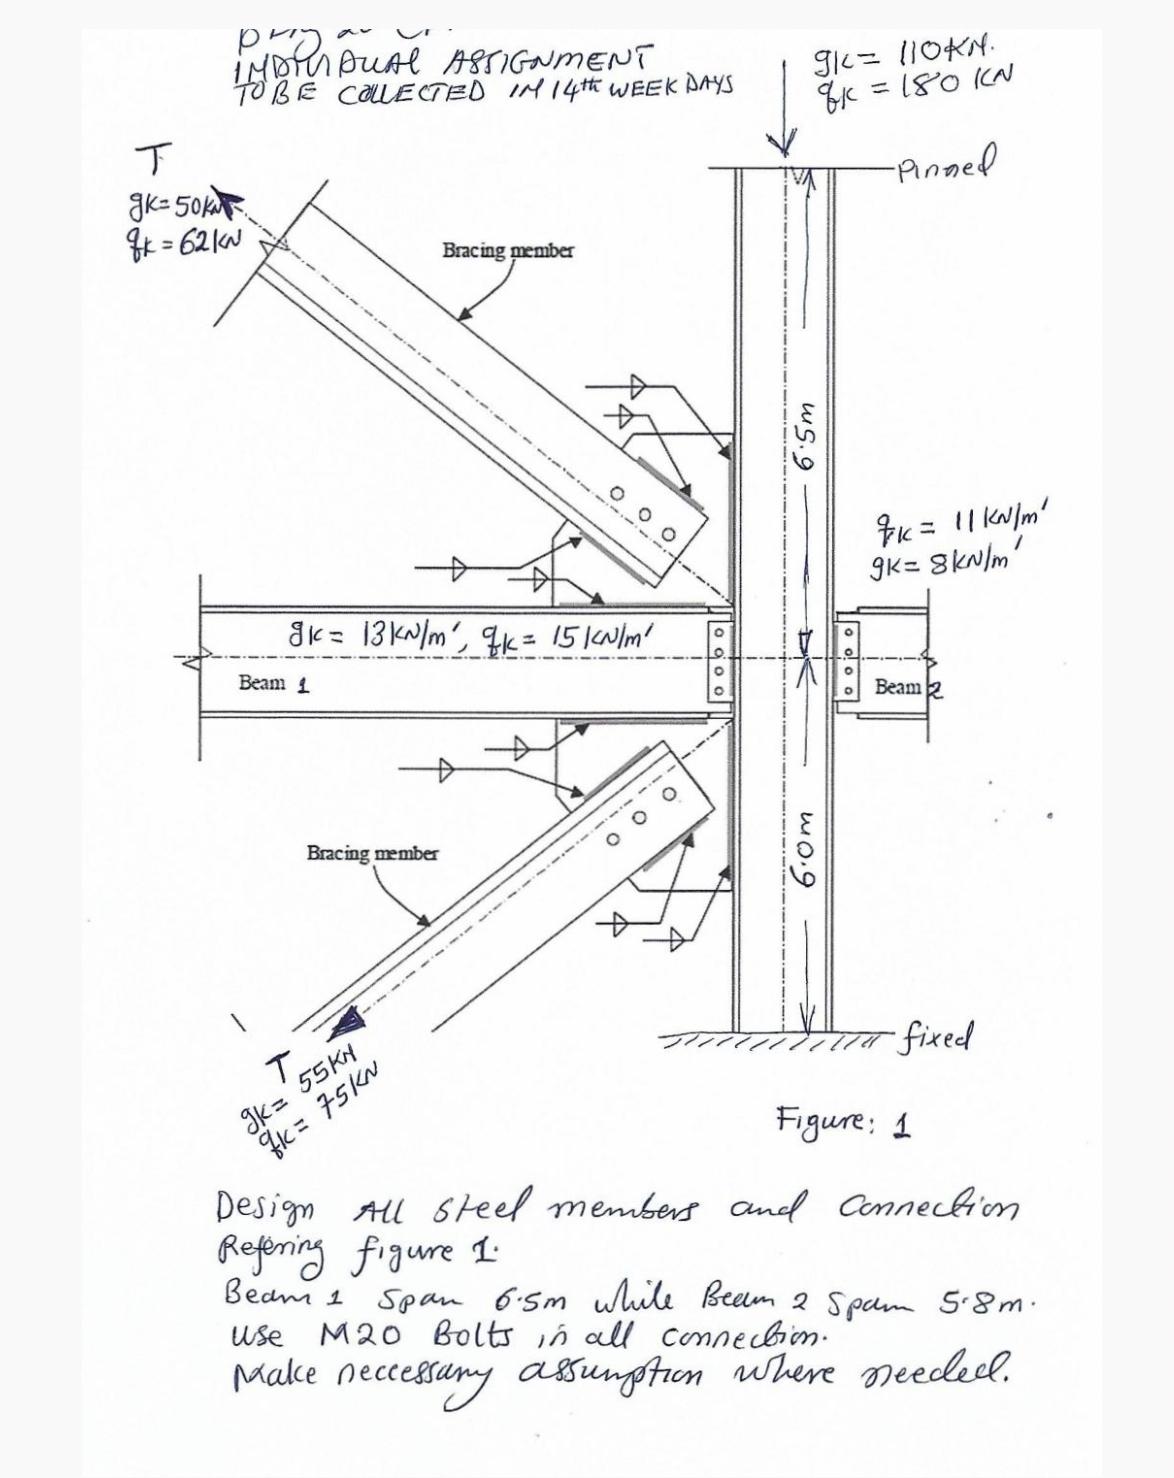 INDIVIDUAL ASSIGNMENT
TO BE COLLECTED IN 14th WEEK DAYS
gk = 110KN.
qk = 180 KN
Pinned
T
gk = 50KN
qk = 62KN
Bracing member
6.5m
qk = 11KN/m'
gk = 8KN/m'
gk = 13KN/m', qk = 15KN/m'
Beam 1
Beam 2
6.0m
Bracing member
fixed
T
gk = 55KN
qk = 75KN
Figure: 1
Design All Steel members and Connection
Refering figure 1.
Beam 1 Span 6.5m while Beam 2 Spam 5.8m.
Use M20 Bolts in all connection.
Make neccessary assumption where needed.